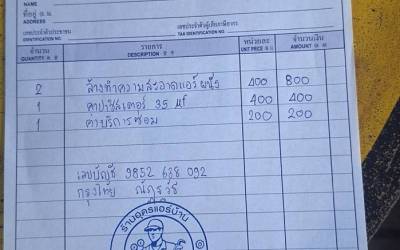 NAME
ที่อยู่
ADDRESS
เลขประจำตัวประชาชน เลขประจำตัวผู้เสียภาษีอากร
IDENTIFICATION NO. TAX IDENTIFICATION NO.
จำนวน รายการ หน่วยละ จำนวนเงิน
QUANTITY DESCRIPTION UNIT PRICE AMOUNT
2 ล้างทำความสะอาดแอร์ ผนัง 400 800
1 คาปาซิสเตอร์ 35 µf 400 400
1 ค่าบริการซ่อม 200 200
เลขบัญชี 9852 638 092
กรุงไทย
ร้านอุดรแอร์บ้าน